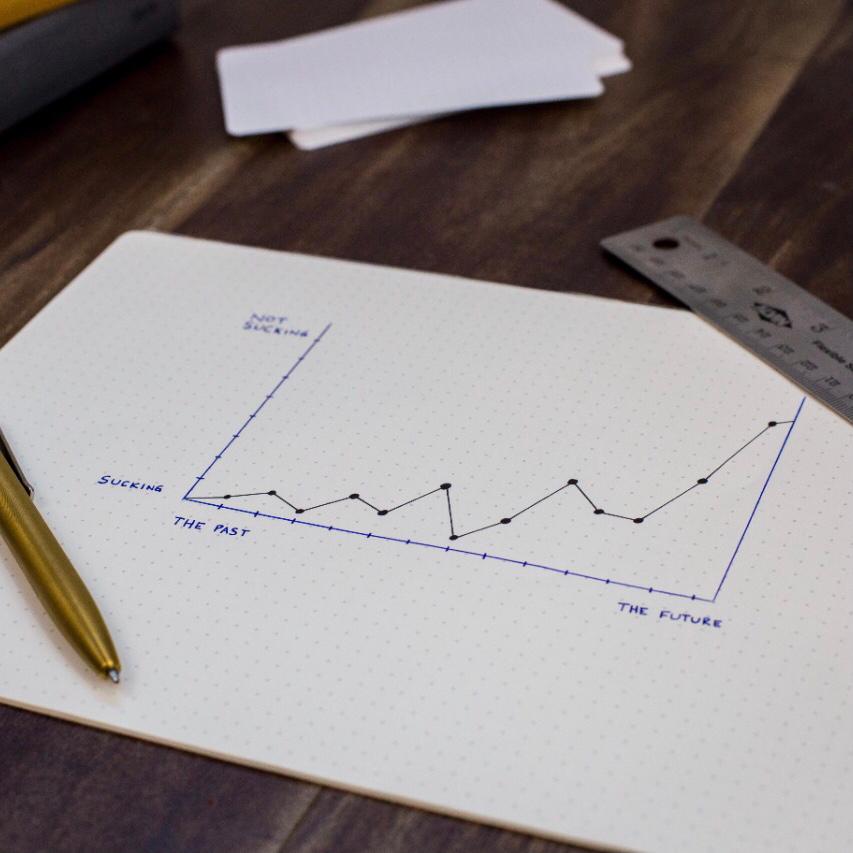 NOT
SUCKING
SUCKING
THE PAST
THE FUTURE
1
2
3